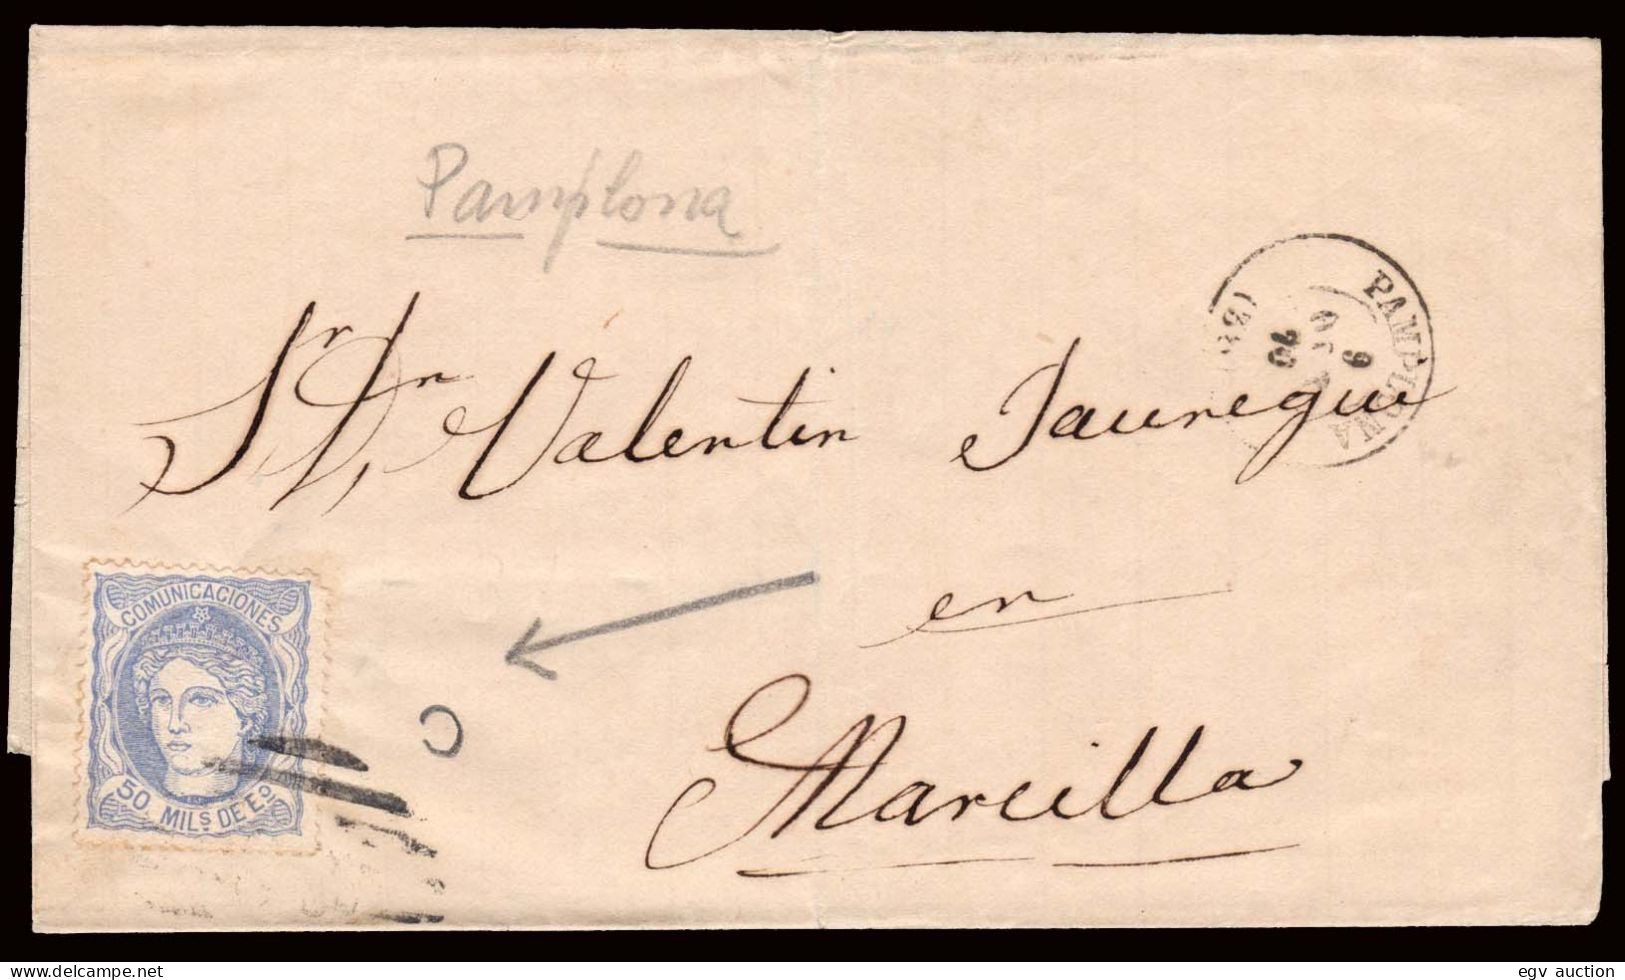 Pamplona
PAMPLONA
9
70
Sr. Dn. Valentin Jauregui
en
Marcilla
COMUNICACIONES
50 MILS DE EO.
egv auction